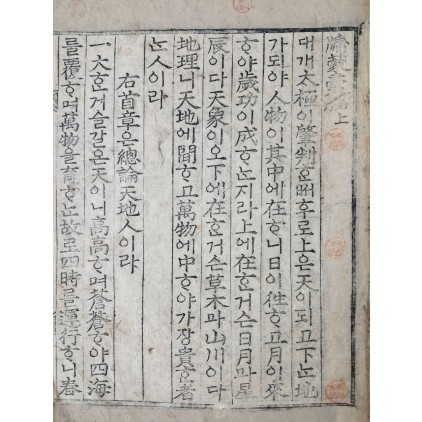 牖蒙彙編上
대개太極이肇判ᄒᆞᆫ後로上은天이되고下ᄂᆞᆫ地
가되야人物이其中에在ᄒᆞ니日이往ᄒᆞ고月이來
ᄒᆞ야歲功이成ᄒᆞᄂᆞᆫ지라上에在ᄒᆞᆫ거슨日月과星
辰이다天象이오下에在ᄒᆞᆫ거슨草木과山川이다
地理니天地에間ᄒᆞ고萬物에中ᄒᆞ야가장貴ᄒᆞᆫ者
ᄂᆞᆫ人이라
右首章은總論天地人이라
一大ᄒᆞᆫ거슬갈온天이니高高ᄒᆞ며蒼蒼ᄒᆞ야四海
를覆ᄒᆞ며萬物을育ᄒᆞᄂᆞᆫ故로四時를運行ᄒᆞ니春